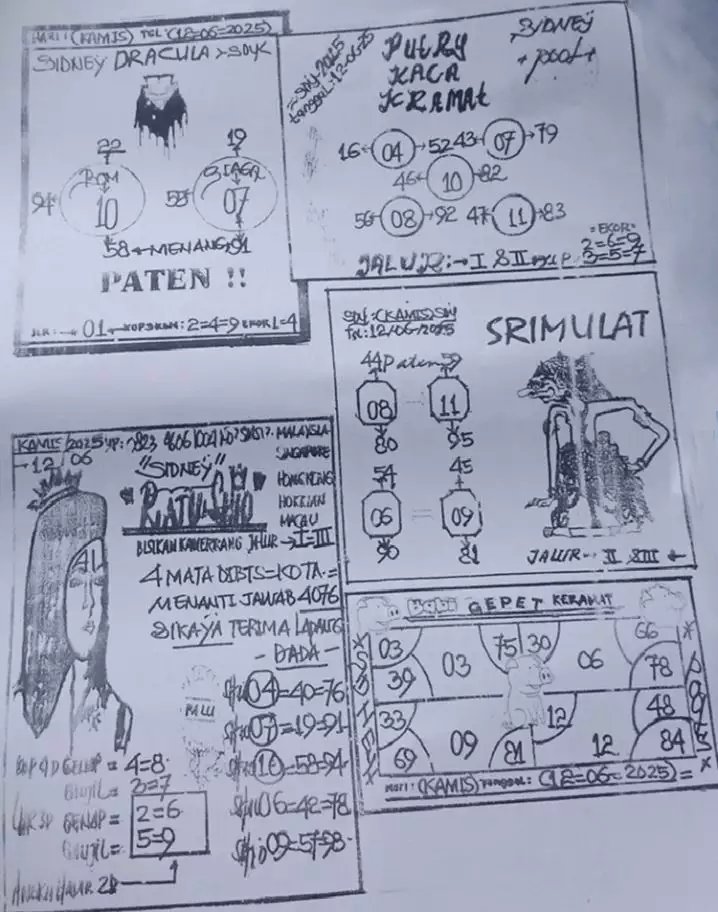 HARI : (KAMIS) TGL : (12=06=2025)
SIDNEY DRACULA > SDYK
22 19
BOM SIAGA
94 10 58 07
58 MENANG 91
PATEN !!
JLR : 01 KOP3KAN : 2=4=9 EKOR 1=4
SDY-2025
tanggal : 12-06-25
PUTRY
KACA
KRAMAT
SIDNEY
pool
16 04 52 43 07 79
46 10 82
56 08 92 47 11 83
JALUR : I & II
=EKOR=
2=6=9
3=5=7
SDY : (KAMIS) SDY
TGL : 12/06-2025
SRIMULAT
44 Paten 59
08 11
80 95
54 45
06 = 09
90 81
JALUR II & III
KAMIS/2025
12/06
MALAYSIA
SINGAPORE
HONGKONG
HOKKIAN
MACAU
"SIDNEY"
"RATU SHIO
BISIKAN KAWERRANG JALUR I-III
4 MATA DIBTS=KOTA=
MENANTI JAWAB 4076
SIKAYA TERIMA LADANG
- DADA -
41
PALU
Shio 04=40=76
Shio 07=19=91
Shio 10=58=94
Shio 06=42=78
Shio 09=57=98
KOP 4D GENAP = 4=8
GANJIL = 3=7
GENAP = 2=6
GANJIL = 5=9
ANGKA 2D
Babi GEPET KERAMAT
03 75 30 66
03 06
39 78
33 12 48
09 12
69 81 84
HARI : (KAMIS) TANGGAL : (12=06=2025) =